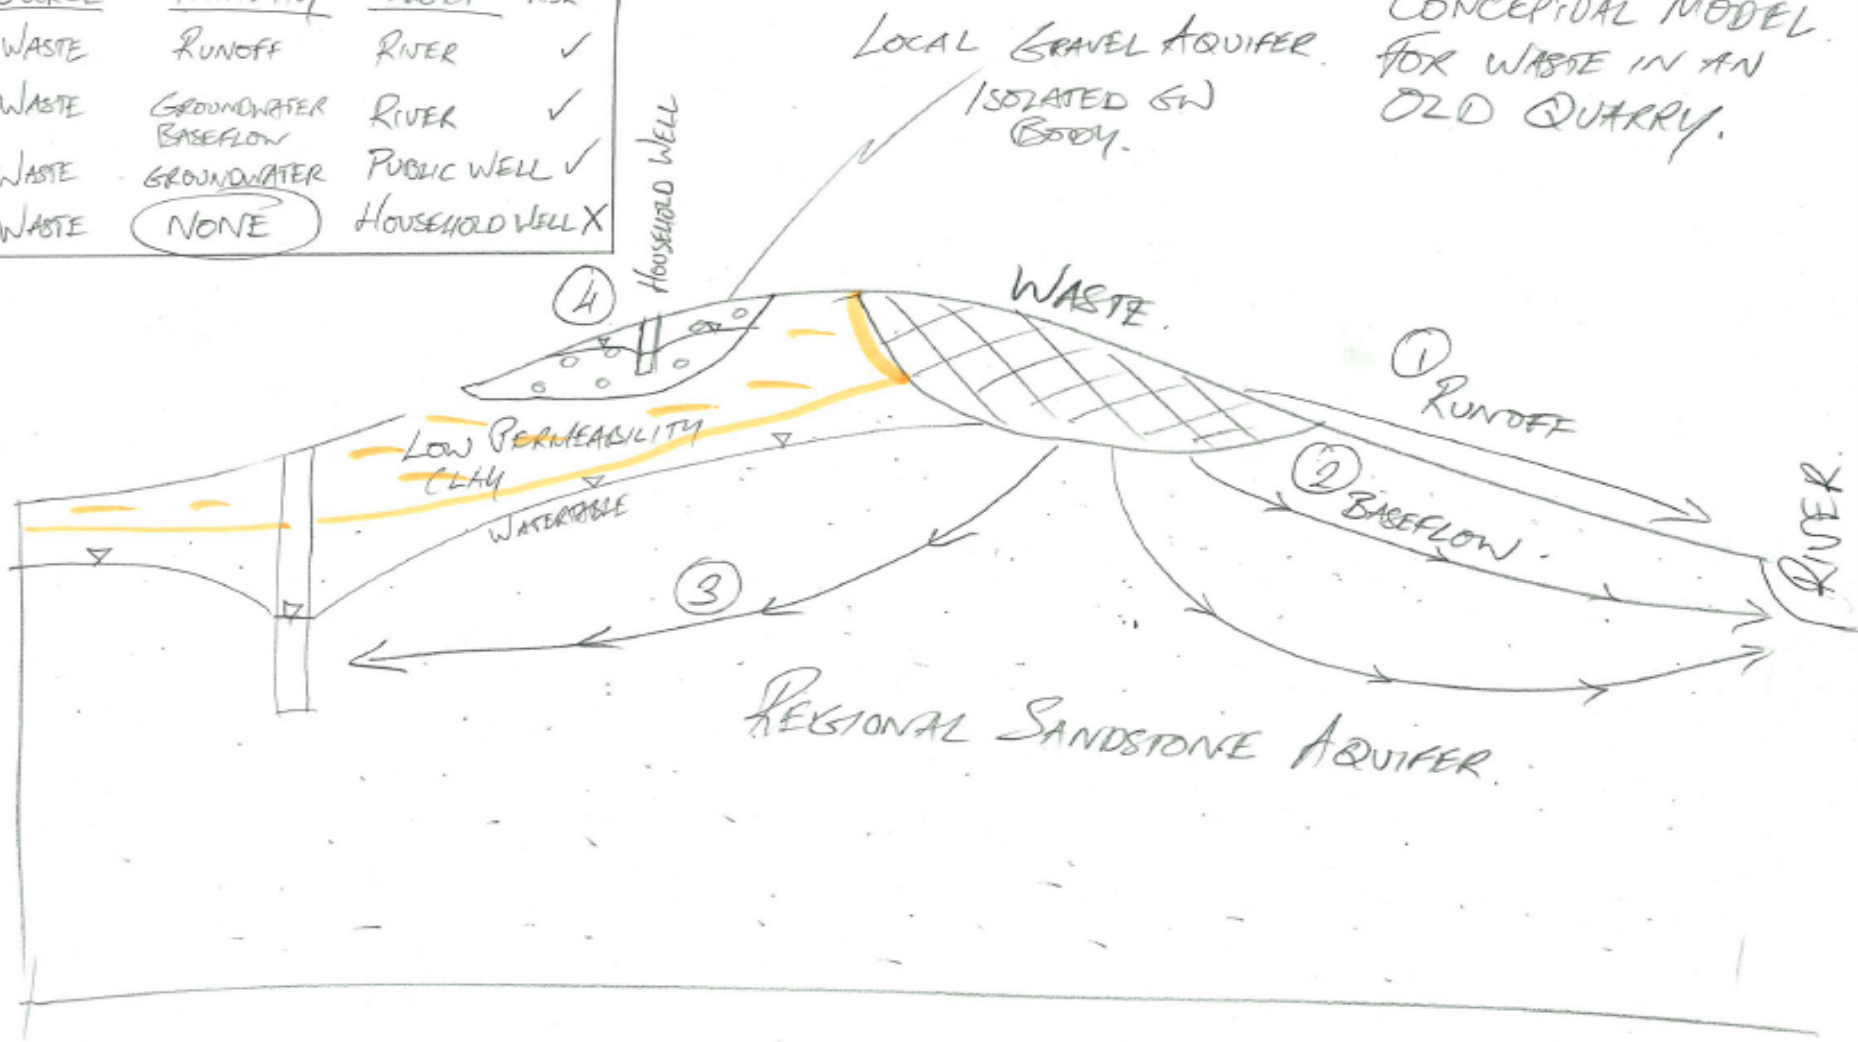 WASTE RUNOFF RIVER ✓
WASTE GROUNDWATER BASEFLOW RIVER ✓
WASTE GROUNDWATER PUBLIC WELL ✓
WASTE NONE HOUSEHOLD WELL X
LOCAL GRAVEL AQUIFER.
ISOLATED GW
BODY.
CONCEPTUAL MODEL.
FOR WASTE IN AN
OLD QUARRY.
HOUSEHOLD WELL
4
WASTE.
1
RUNOFF
LOW PERMEABILITY
CLAY
WATERTABLE
2
BASEFLOW.
RIVER.
3
REGIONAL SANDSTONE AQUIFER.